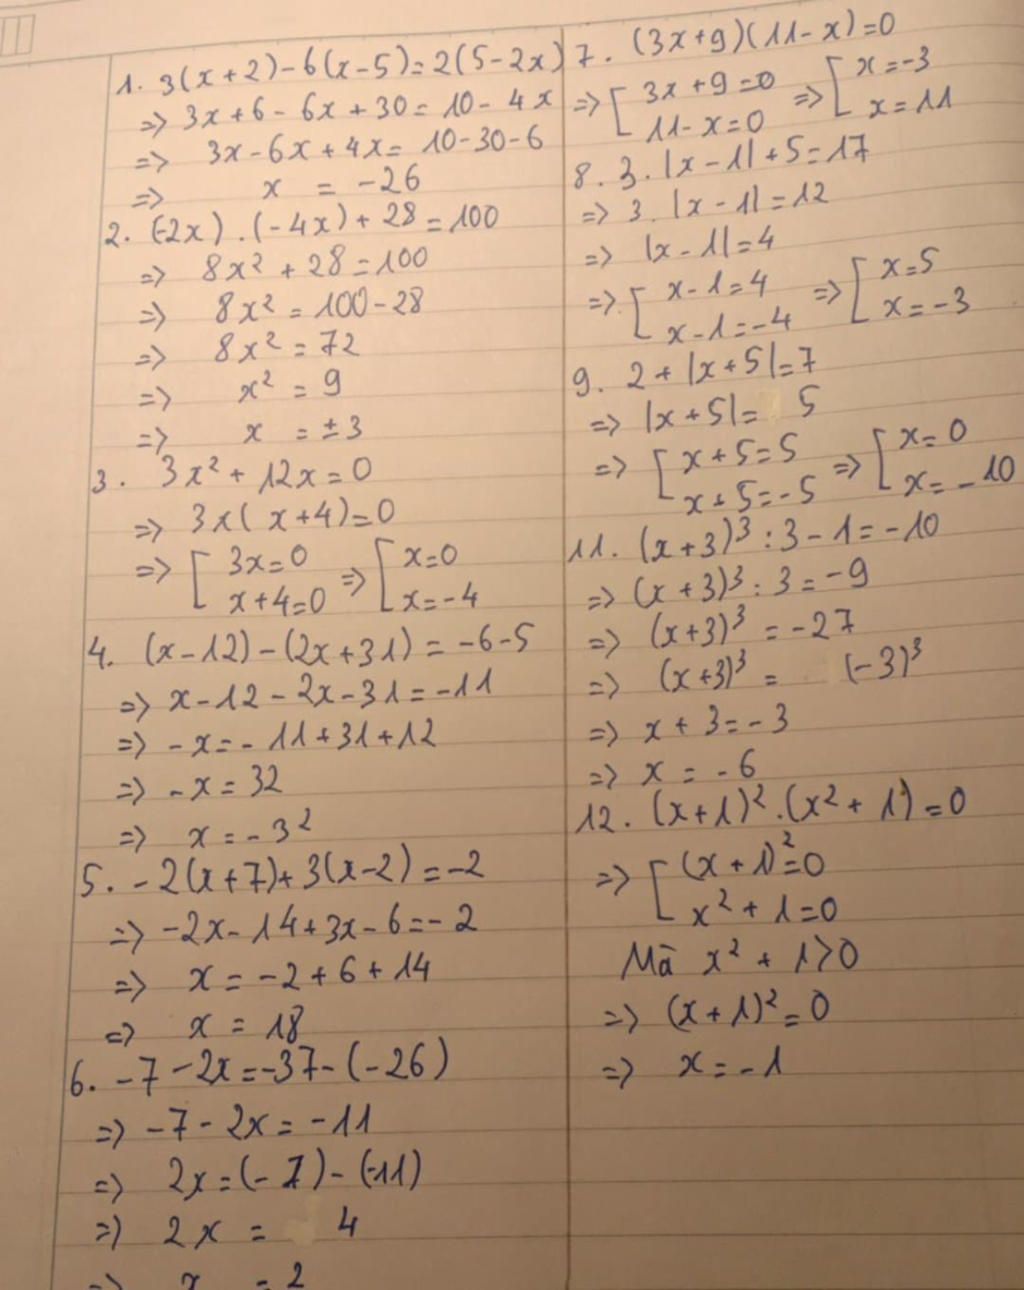 1. 3(x+2)-6(x-5)=2(5-2x)
=> 3x+6-6x+30=10-4x
=> 3x-6x+4x=10-30-6
=> x = -26
2. (-2x).(-4x)+28=100
=> 8x²+28=100
=> 8x²=100-28
=> 8x²=72
=> x²=9
=> x=±3
3. 3x²+12x=0
=> 3x(x+4)=0
=> [ 3x=0 => [ x=0
x+4=0 x=-4
4. (x-12)-(2x+31)=-6-5
=> x-12-2x-31=-11
=> -x=-11+31+12
=> -x=32
=> x=-32
5. -2(x+7)+3(x-2)=-2
=> -2x-14+3x-6=-2
=> x=-2+6+14
=> x=18
6. -7-2x=-37-(-26)
=> -7-2x=-11
=> 2x=(-7)-(-11)
=> 2x= 4
=> x =2
7. (3x+9)(11-x)=0
=> [ 3x+9=0 => [ x=-3
11-x=0 x=11
8. 3.|x-1|+5=17
=> 3.|x-1|=12
=> |x-1|=4
=> [ x-1=4 => [ x=5
x-1=-4 x=-3
9. 2+|x+5|=7
=> |x+5|= 5
=> [ x+5=5 => [ x=0
x+5=-5 x=-10
11. (x+3)³:3-1=-10
=> (x+3)³:3=-9
=> (x+3)³=-27
=> (x+3)³= (-3)³
=> x+3=-3
=> x=-6
12. (x+1)².(x²+1)=0
=> [ (x+1)²=0
x²+1=0
Mà x²+1>0
=> (x+1)²=0
=> x=-1